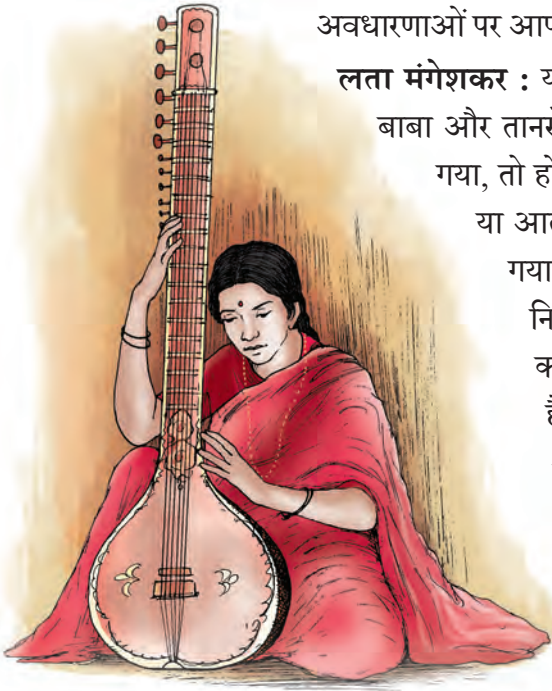 अवधारणाओं पर आप
लता मंगेशकर : य
बाबा और तानसे
गया, तो हो
या आत
गया
नि
क
है